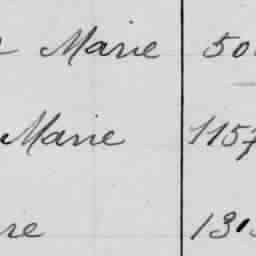 Marie 50
Marie 1157
re 13